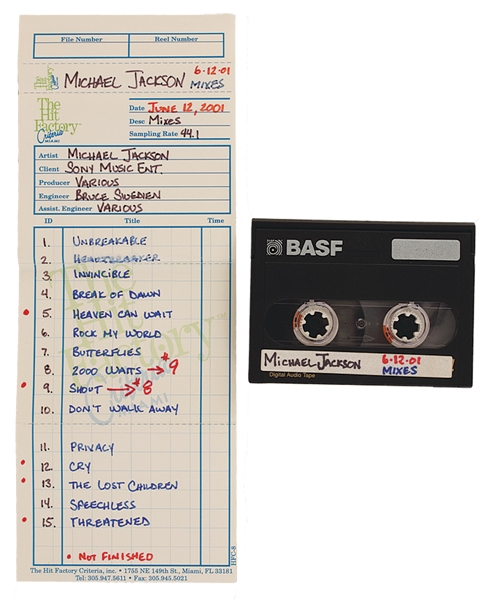 File Number Reel Number
MICHAEL JACKSON 6·12·01 MIXES
The Hit Factory Criteria MIAMI
Date JUNE 12, 2001
Desc MIXES
Sampling Rate 44.1
Artist MICHAEL JACKSON
Client SONY MUSIC ENT.
Producer VARIOUS
Engineer BRUCE SWEDIEN
Assist. Engineer VARIOUS
ID Title Time
1. UNBREAKABLE
2. HEARTBREAKER
3. INVINCIBLE
4. BREAK OF DAWN
• 5. HEAVEN CAN WAIT
6. ROCK MY WORLD
7. BUTTERFLIES
8. 2000 WATTS → #9
• 9. SHOUT → #8
10. DON'T WALK AWAY
11. PRIVACY
• 12. CRY
• 13. THE LOST CHILDREN
14. SPEECHLESS
• 15. THREATENED
• NOT FINISHED
HFC-8
The Hit Factory Criteria, inc. • 1755 NE 149th St., Miami, FL 33181
Tel: 305.947.5611 • Fax: 305.945.5021
BASF
MICHAEL JACKSON 6·12·01 MIXES
Digital Audio Tape